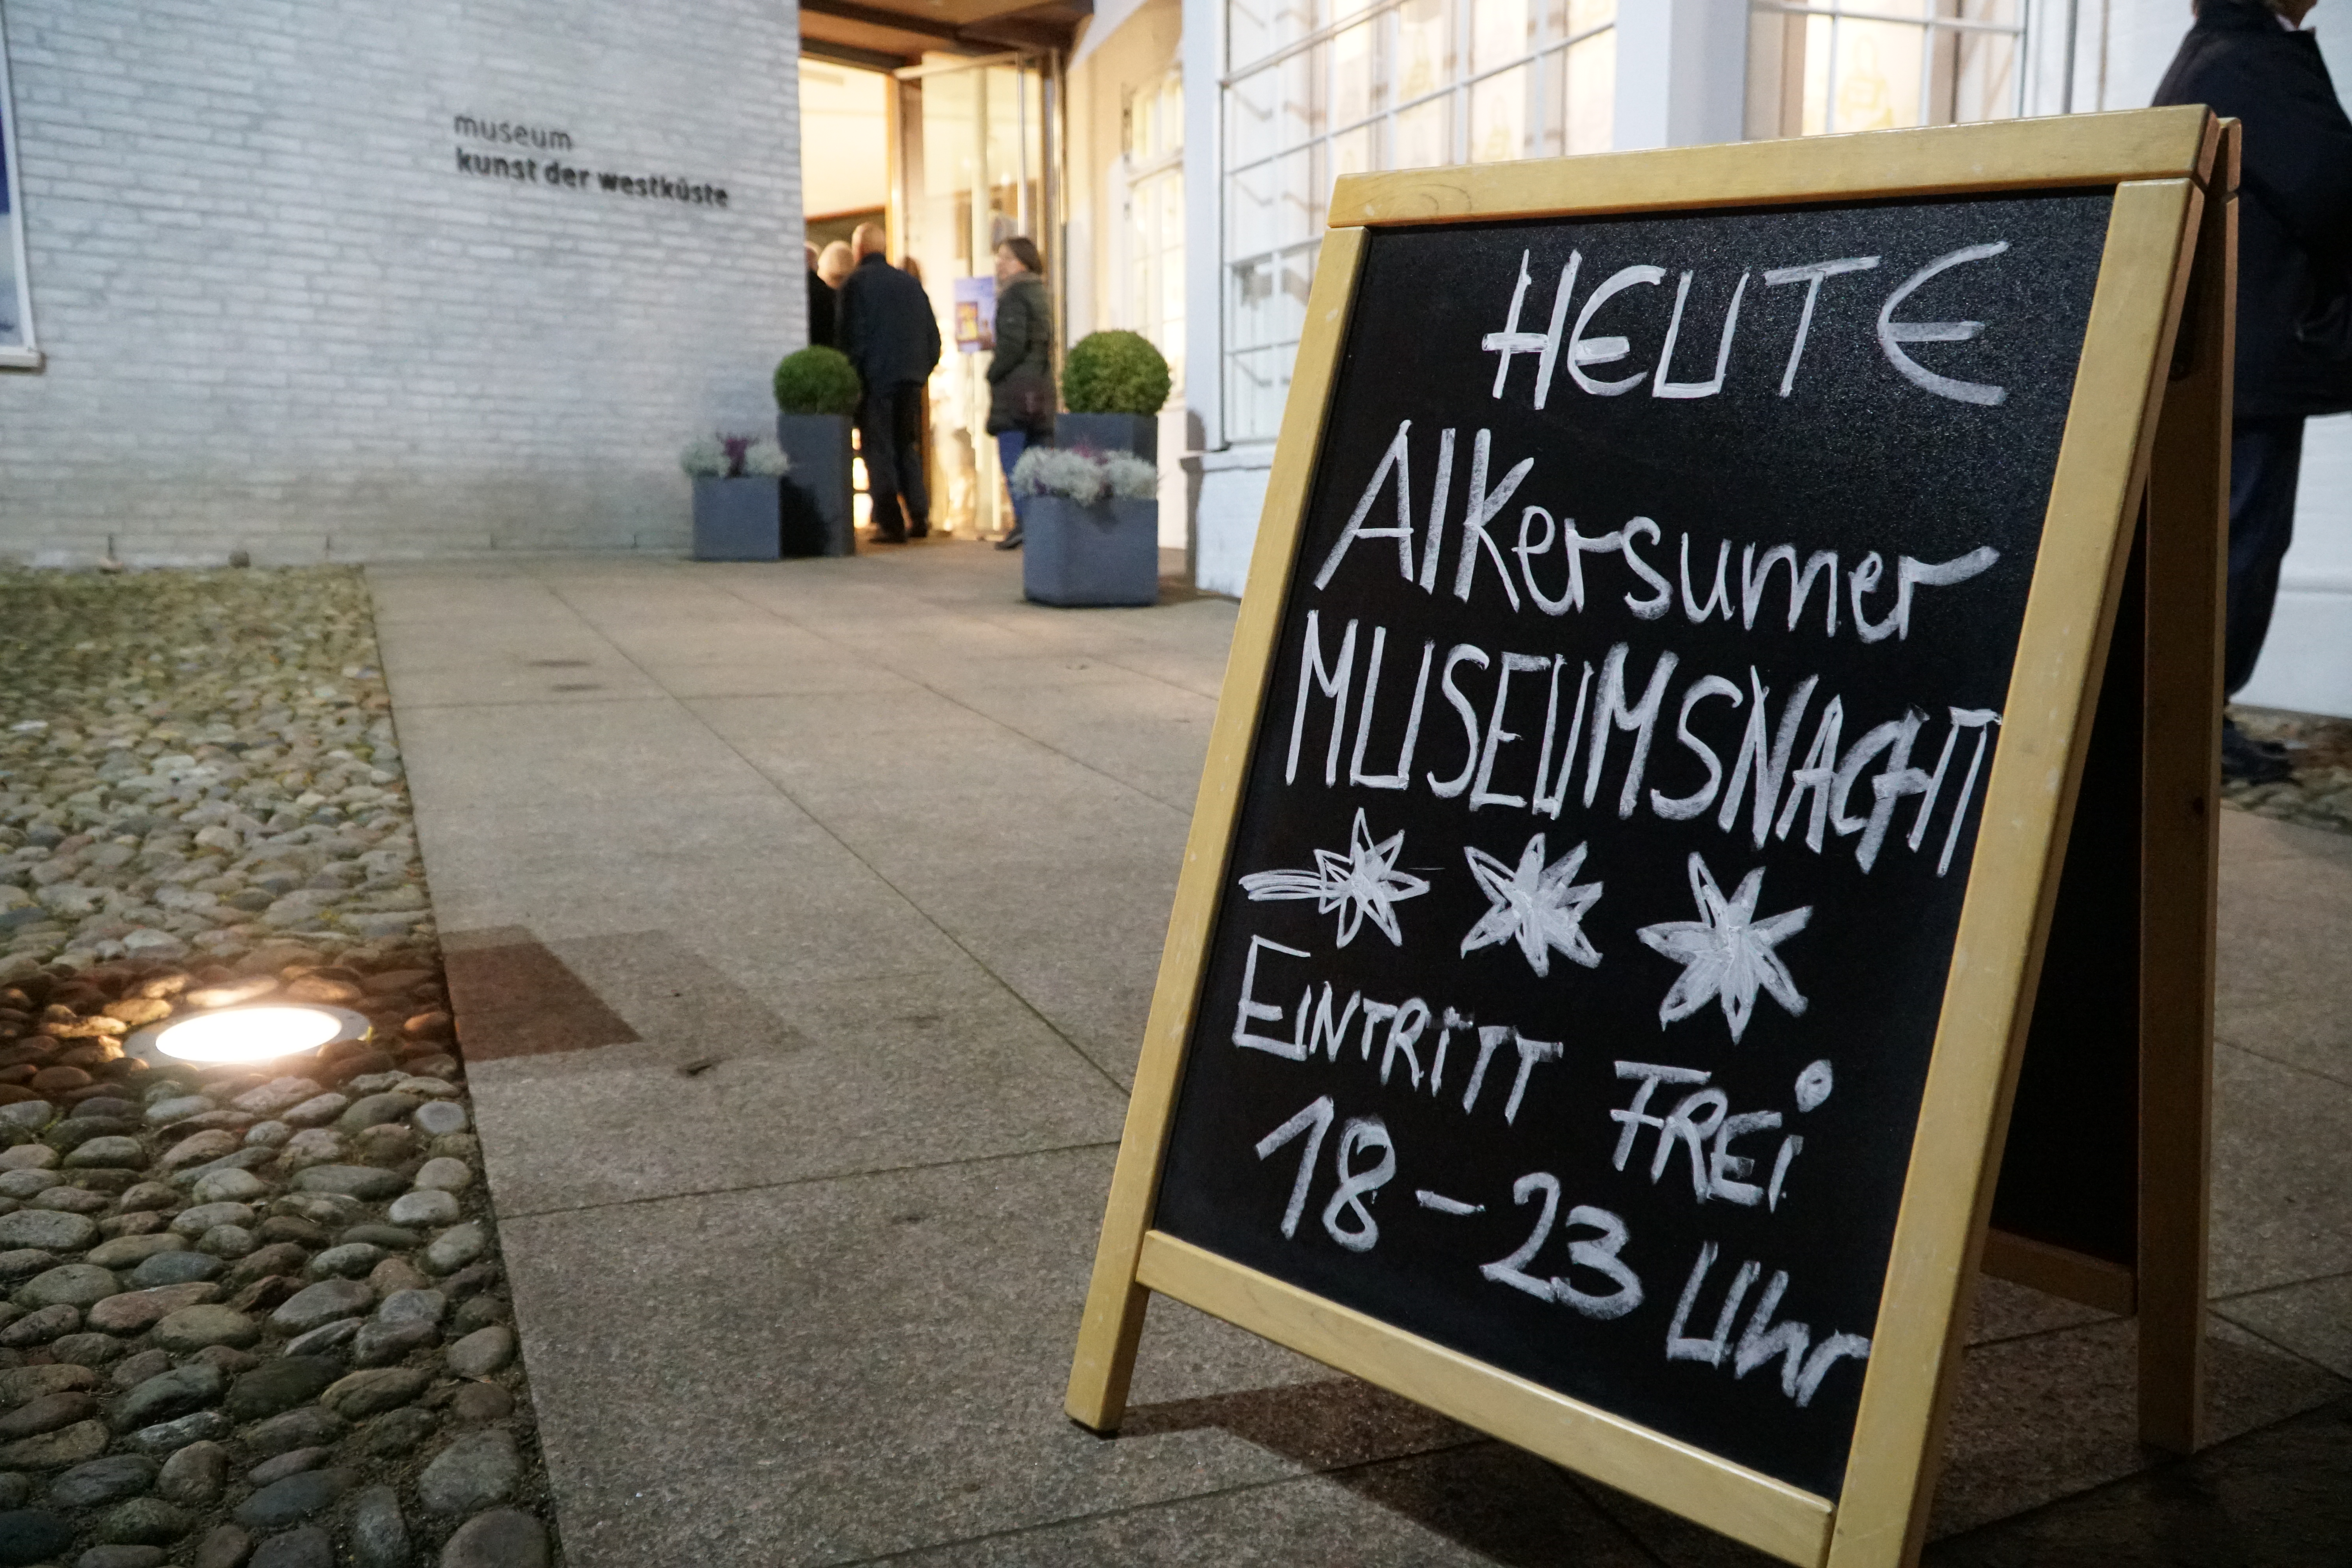 museum
kunst der westküste
HEUTE
Alkersumer
MUSEUMSNACHT
EINTRITT FREi
18-23 Uhr